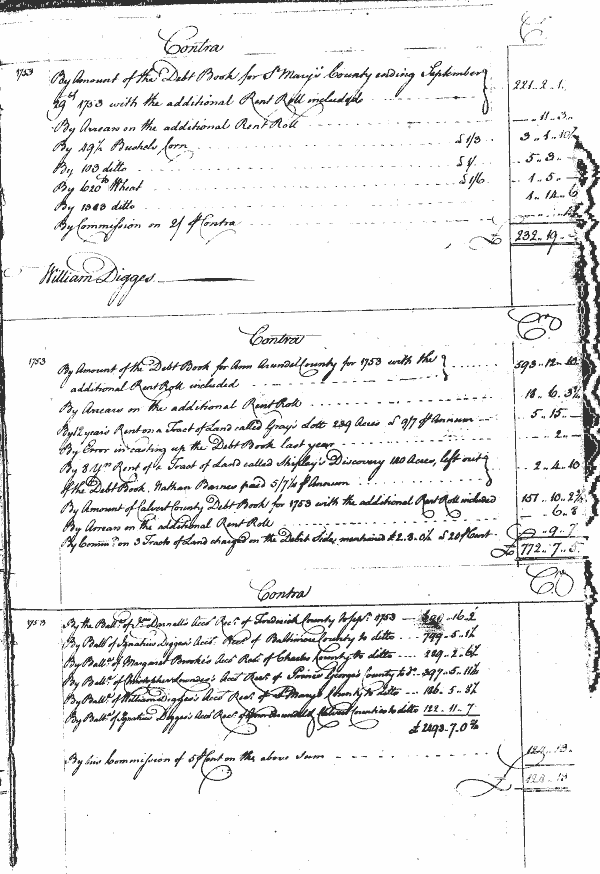 Contra
1753 By Amount of the Debt Book for St Mary's County ending September 221..2..1
29th 1753 with the additional Rent Roll included
By Arrears on the additional Rent Roll ..11..3
By 49½ Bushels Corn @ 1/3 3..1..10½
By 103 ditto @ 1/ 5..3
By 620 lb Wheat @ 1/6
By 1343 ditto 4..14..6
By Commission on 2/ Contra
£ 232..19
William Digges
Contra Cr
1753 By Amount of the Debt Book for Ann Arundel County for 1753 with the 593..12..10
additional Rent Roll included
By Arrears on the additional Rent Roll 18..6..3½
By 12 years Rent on a Tract of Land called Gray's Lott 239 Acres @ 9/7 ⅌ Annum 5..15
By Error in casting up the Debt Book last year 2
By 8 Yrs Rent of a Tract of Land called Shipley's Discovery 140 Acres, left out 2..4..10
of the Debt Book Nathan Barnes paid 5/7¼ ⅌ Annum
By Amount of Calvert County Debt Book for 1753 with the additional Rent Roll included 151..10..2½
By Arrears on the additional Rent Roll ..6..8
By Commn on 3 Tracts of Land charged on the Debit Side, mentioned £2.3.0½ @ 20 ⅌ Cent ..9..7
£ 772..7..5
Contra Cr
1753 By the Balle of Darnall's Acct Recr of Frederick County to Sepr 1753 16..2
By Balle of Ignatius Digges's Acct Recr of Baltimore County to ditto 749..5..1½
By Balle of Margaret Brooke's Acct Recr of Charles County to ditto 249..2..6½
By Balle of Christopher Lowndes's Acct Recr of Prince George's County to Do 397..5..11½
By Balle of William Digges's Acct Recr of St Mary's County to ditto 186..5..8½
By Balle of Ignatius Digges's Acct Recr of Ann Arundel & Calvert Counties to ditto 122..11..7
£ 2493..7..0½
By his Commission of 5 ⅌ Cent on the above Sum 124..13
£ 124..13